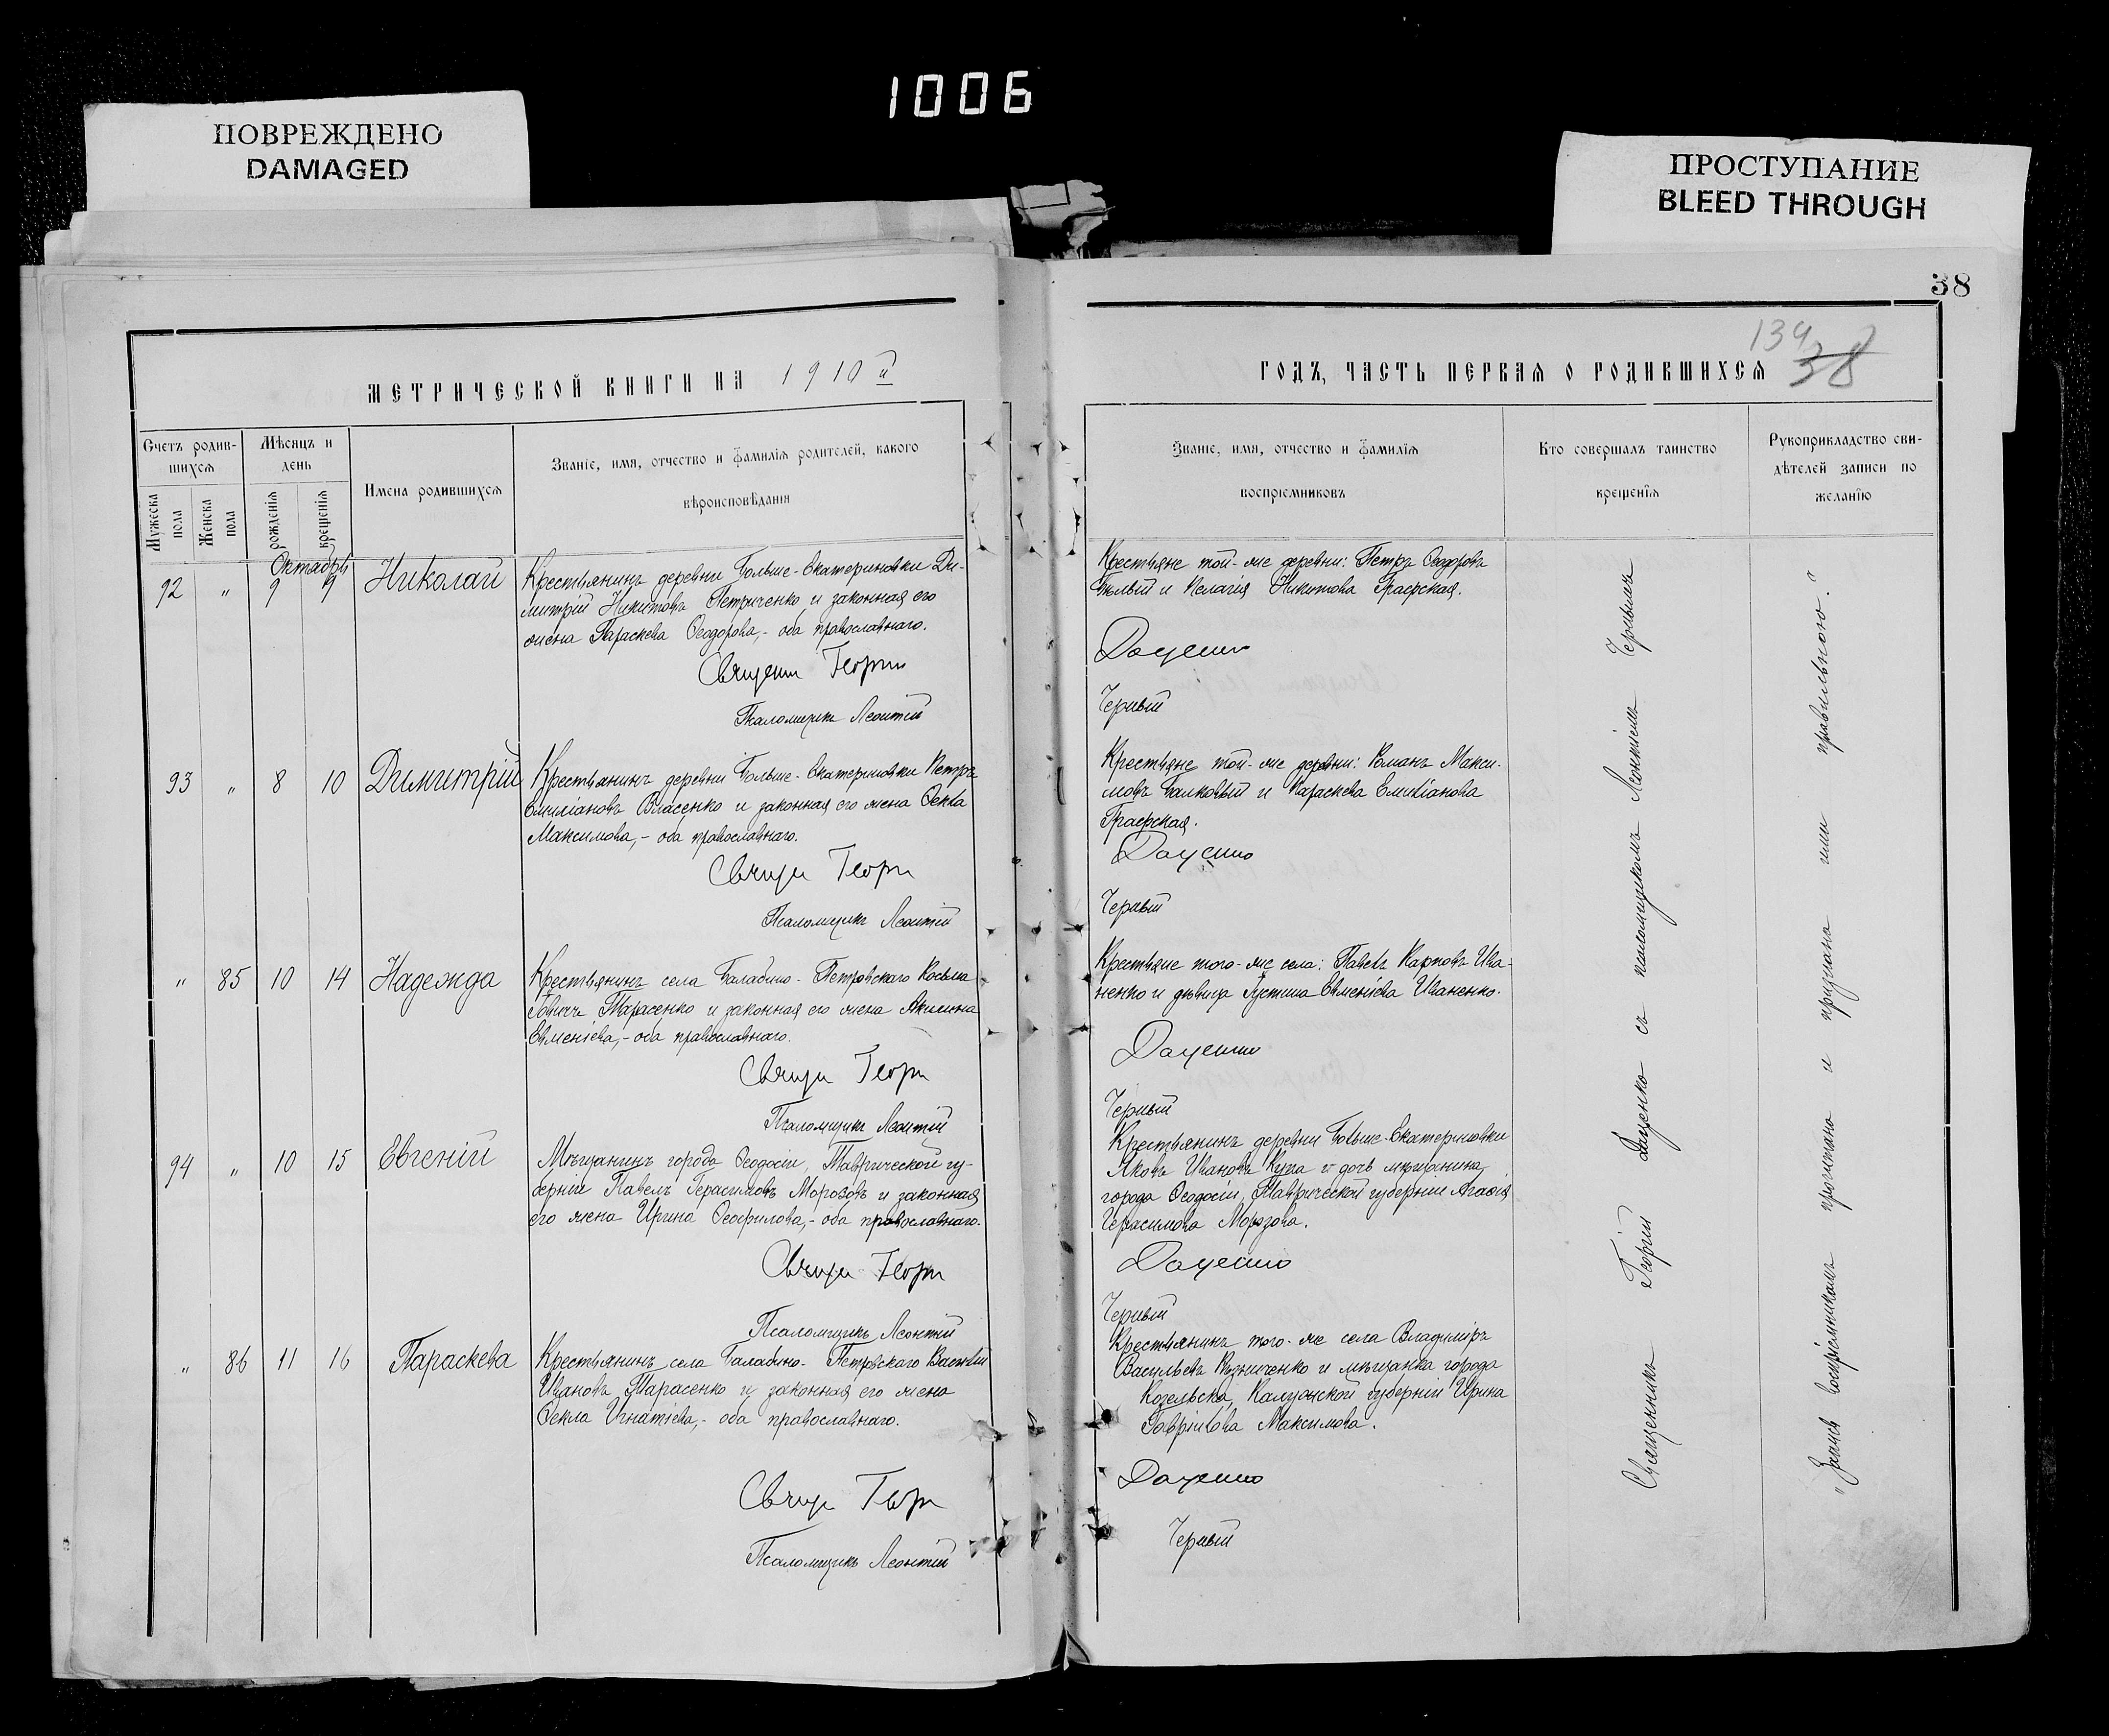 1006
ПОВРЕЖДЕНО
DAMAGED
ПРОСТУПАНИЕ
BLEED THROUGH
38
134
38
МЕТРИЧЕСКОЙ КНИГИ НА 1910й
Счетъ родив-
шихся
Мужеска
пола
Женска
пола
Мѣсяцъ и
день
рожденія
крещенія
Имена родившихся
Званіе, имя, отчество и фамилія родителей, какого
вѣроисповѣданія
Октябрь
92 " 9 9 Николай
Крестьянинъ деревни Больше-Екатериновки Ди-
митрій Никитовъ Петриченко и законная его
жена Параскева Ѳеодорова,- оба православнаго.
Священ Георгій
Псаломщикъ Леонтій
93 " 8 10 Димитрій
Крестьянинъ деревни Больше-Екатериновки Петръ
Емиліановъ Власенко и законная его жена Ѳекла
Максимова,- оба православнаго.
Свящ Георг
Псаломщикъ Леонтій
" 85 10 14 Надежда
Крестьянинъ села Балабино-Петровскаго Косьма
Тарасенко и законная его жена Акилина
Евменіева,- оба православнаго.
Свящ Георг
Псаломщикъ Леонтій
94 " 10 15 Евгеній
Мѣщанинъ города Ѳеодосіи, Таврической гу-
берніи Павелъ Герасимовъ Морозовъ и законная
его жена Ирина Ѳеофилова,- оба православнаго.
Свящ Георг
Псаломщикъ Леонтій
" 86 11 16 Параскева
Крестьянинъ села Балабино-Петровскаго Василій
Ивановъ Тарасенко и законная его жена
Ѳекла Игнатіева,- оба православнаго.
Свящ Георг
Псаломщикъ Леонтій
ГОДЪ, ЧАСТЬ ПЕРВАЯ О РОДИВШИХСЯ
Званіе, имя, отчество и фамилія
воспріемниковъ
Кто совершалъ таинство
крещенія
Рукоприкладство сви-
дѣтелей записи по
желанію
Крестьяне той-же деревни: Петръ Ѳеодоровъ
Бѣлый и Пелагія Никитова Граефская.
Доценко
Черный
Крестьяне той-же деревни: Романъ Макси-
мовъ Балковый и Параскева Емиліанова
Граефская.
Доценко
Черный
Крестьяне того-же села: Павелъ Карповъ Ива-
ненко и дѣвица Іустина Евменіева Иваненко.
Доценко
Черный
Крестьянинъ деревни Больше-Екатериновки
Яковъ Ивановъ Куца и дочь мѣщанина
города Ѳеодосіи, Таврической губерніи Агаѳія
Герасимова Морозова.
Доценко
Черный
Крестьянинъ того-же села Владиміръ
Васильевъ Кузниченко и мѣщанка города
Козельска, Калужской губерніи Ирина
Гавріилова Максимова.
Доценко
Черный
Священникъ Георгій Доценко съ псаломщикомъ Леонтіемъ Чернымъ
"Запись воспріемникамъ прочитана и признана ими правильною."